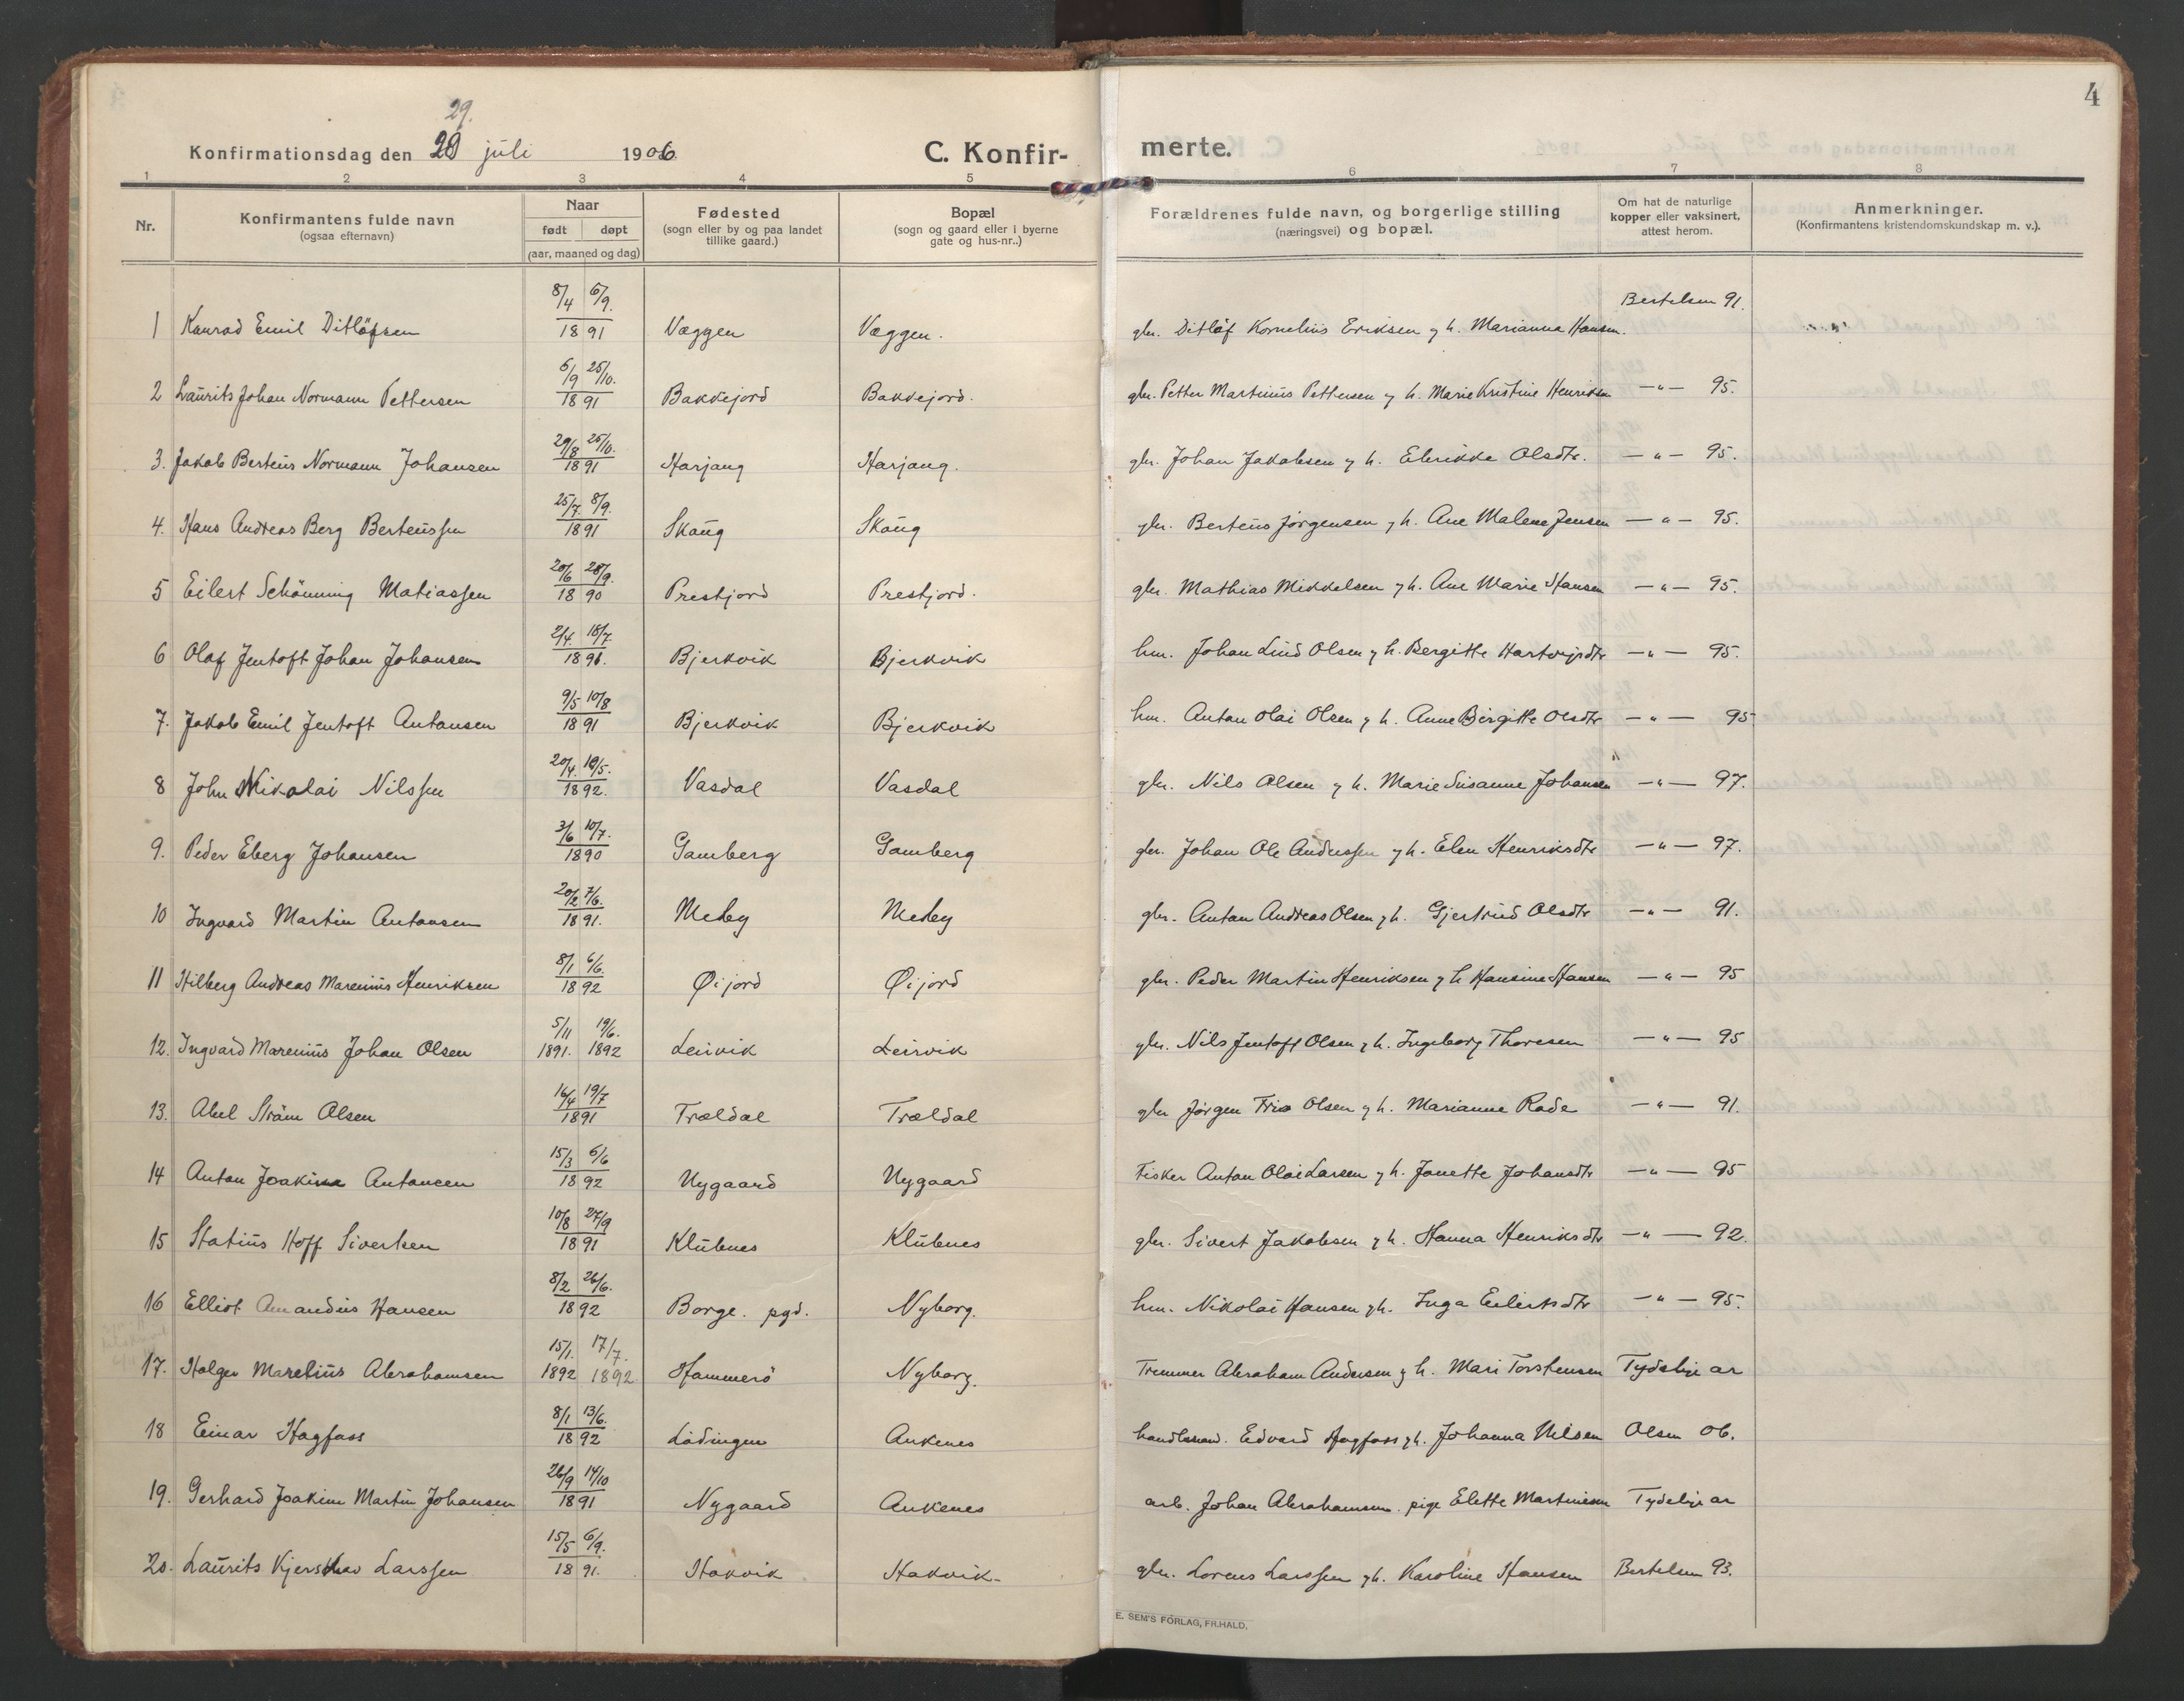 4
29.
Konfirmationsdag den 29 juli 1906. C. Konfir- merte.
1 2 3 4 5 6 7 8
Nr. Konfirmantens fulde navn (ogsaa efternavn) Naar født døpt (aar, maaned og dag) Fødested (sogn eller by og paa landet tillike gaard.) Bopæl (sogn og gaard eller i byerne gate og hus-nr..) Forældrenes fulde navn, og borgerlige stilling (næringsvei) og bopæl. Om hat de naturlige kopper eller vaksinert, attest herom. Anmerkninger. (Konfirmantens kristendomskundskap m. v.).
1 Konrad Emil Ditløfsen 8/4 6/9. 1891 Væggen Væggen. gbr. Ditløf Kornelius Eriksen og h. Marianna Hansen. Bertelsen 91.
2 Laurits Johan Normann Pettersen 6/9 25/10. 1891 Bakkejord Bakkejord. gbr. Petter Martinus Pettersen og h. Marie Kristine Henriksen —"— 95.
3. Jakob Berteus Normann Johansen 29/8 25/10. 1891 Harjang Harjang. gbr. Johan Jakobsen og h. Elerikke Olsdtr. —"— 95.
4. Hans Andreas Berg Berteussen 25/7 8/9. 1891 Skaug Skaug gbr. Berteus Jørgensen og h. Ane Malene Jensen —"— 95.
5 Eilert Schønning Matiassen 20/6 28/9. 1890 Prestjord Prestjord. gbr. Mathias Mikkelsen og h. Ane Marie Hansen —"— 95.
6 Olaf Jentoft Johan Johansen 2/4. 18/7. 1891. Bjerkvik Bjerkvik hm. Johan Lind Olsen og h. Bergitte Hartvigsdtr —"— 95.
7. Jakob Emil Jentoft Antonsen 9/5 10/8 1891 Bjerkvik Bjerkvik hm. Anton Olai Olsen og h. Anne Birgitte Olsdtr —"— 95
8 John Nikolai Nilssen 20/4. 19/5. 1892. Vasdal Vasdal gbr. Nils Olsen og h. Marie Susanne Johansen —"— 97.
9. Peder Eberg Johansen 3/6 10/7. 1890 Gamberg Gamberg gbr. Johan Ole Anderssen og h. Elen Henriksdtr —"— 97.
10 Ingvard Martin Antonsen 20/2 7/6. 1891. Meby Meby gbr. Anton Andreas Olsen og h. Gjertrud Olsdtr —"— 91.
11 Hilberg Andreas Marenius Henriksen 8/1 6/6. 1892 Øijord Øijord gbr. Peder Martin Henriksen og h Hansine Hansen —"— 95
12. Ingvard Marenius Johan Olsen 5/11 19/6. 1891. 1892 Leirvik Leirvik gbr. Nils Jentoft Olsen og h. Ingeborg Thoresen —"— 95
13. Abel Strøm Olsen 16/4 19/7 1891 Trældal Trældal gbr Jørgen Friis Olsen og h. Marianne Rode —"— 91.
14 Anton Joakim Antonsen 15/3 6/6 1892 Nygaard Nygaard Fisker Anton Olai Larsen og h. Jonette Johansdtr —"— 95
15 Statius Hoff Sivertsen 10/8 27/9 1891 Klubnes Klubnes gbr. Sivert Jakobsen og h. Hanna Henriksdtr —"— 92.
16 Elliot Amandus Hansen 8/2 26/6. 1892 Borge. pgd. Nyborg. hm. Nikolai Hansen og h. Inga Eilertsdtr —"— 95.
17. Holger Marelius Abrahamsen 15/1. 17/7. 1892 1892. Hammerø Nyborg. Tremmer Abraham Andersen og h. Mari Torstensen Tydelige ar
18 Einar Hagfoss 8/1 13/6. 1892 Lødingen Ankenes handlsmand. Edvard Hagfoss og h. Johanna Nilsen Olsen 06.
19. Gerhard Joakim Martin Johansen 26/9 14/10 1891 Nygaard Ankenes arb. Johan Abrahamsen. pige Elette Martinesen Tydelige ar
20. Laurits Larssen 15/5 6/9. 1891. Hakvik Hakvik gbr. Lorens Larssen og h. Karoline Hansen Bertelsen 93.
E. SEM'S FORLAG, FR.HALD.